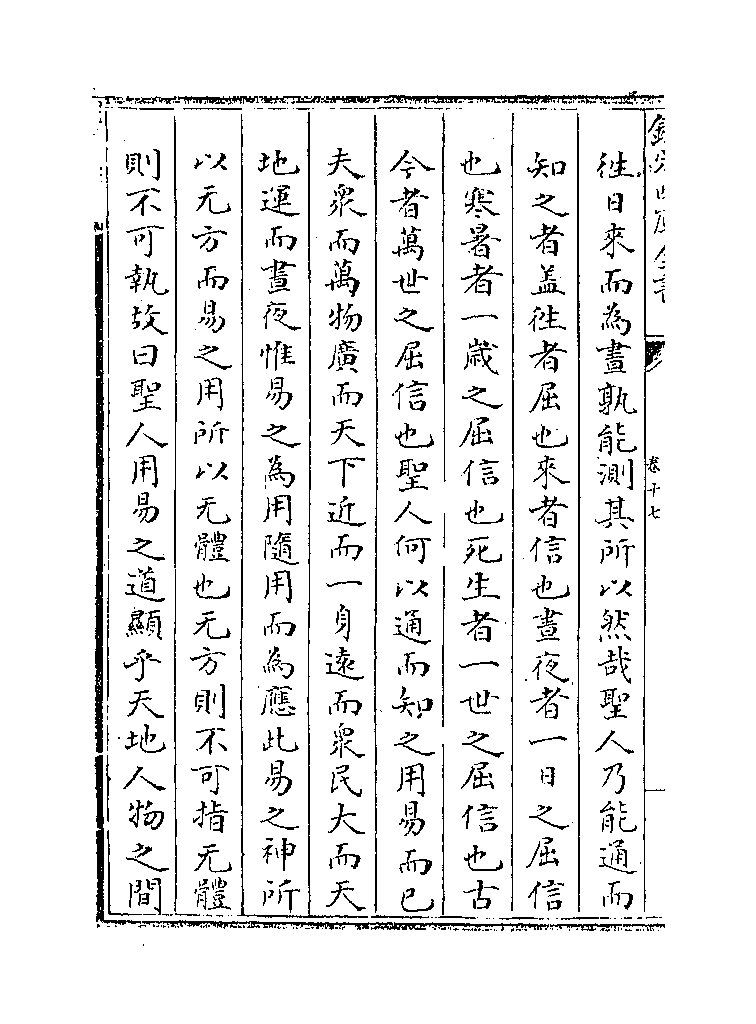 欽定四庫全書
卷十七
徃日來而為晝孰能測其所以然哉聖人乃能通而
知之者盖徃者屈也來者信也晝夜者一日之屈信
也寒暑者一歲之屈信也死生者一世之屈信也古
今者萬世之屈信也聖人何以通而知之用易而已
夫衆而萬物廣而天下近而一身逺而衆民大而天
地運而晝夜惟易之為用隨用而為應此易之神所
以无方而易之用所以无體也无方則不可指无體
則不可執故曰聖人用易之道顯乎天地人物之間